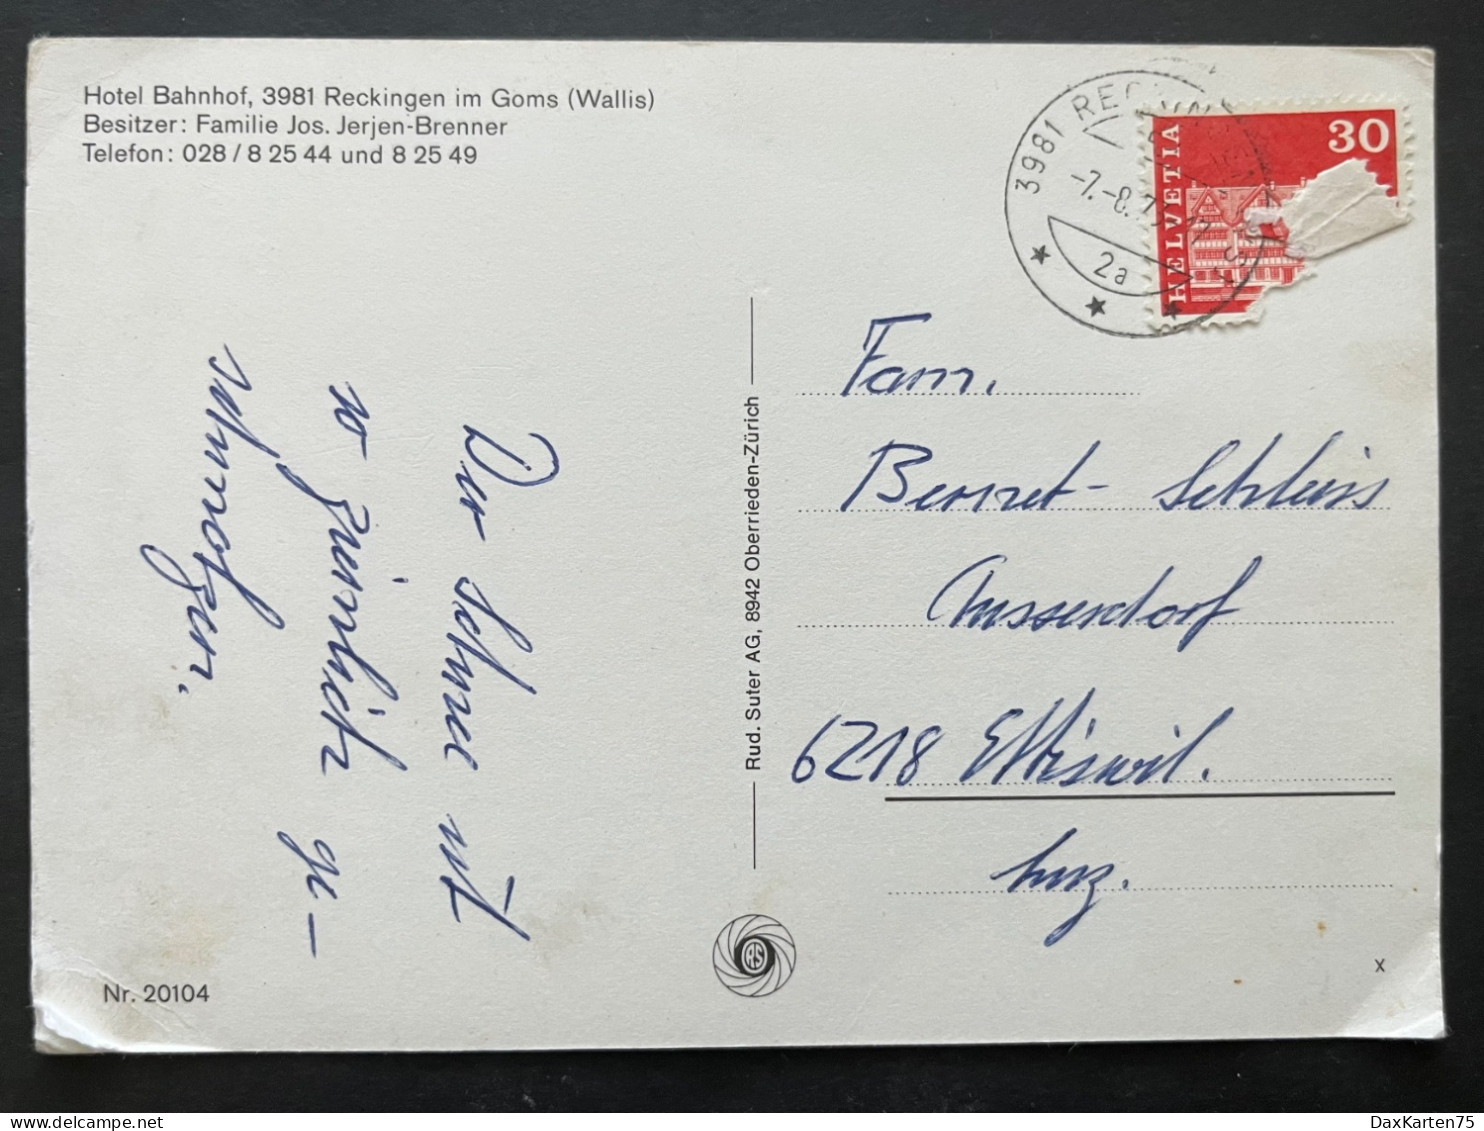 Hotel Bahnhof, 3981 Reckingen im Goms (Wallis)
Besitzer: Familie Jos. Jerjen-Brenner
Telefon: 028 / 8 25 44 und 8 25 49
Der Schnee ist
so ziemlich ge-
schmolzen.
Nr. 20104
Rud. Suter AG, 8942 Oberrieden-Zürich
3981 RECKING
-7.-8.7
2a
HELVETIA
30
Fam.
Bernet- Schleiss
Ausserdorf
6218 Ettiswil.
Luz.
RS
x
DaxKarten75